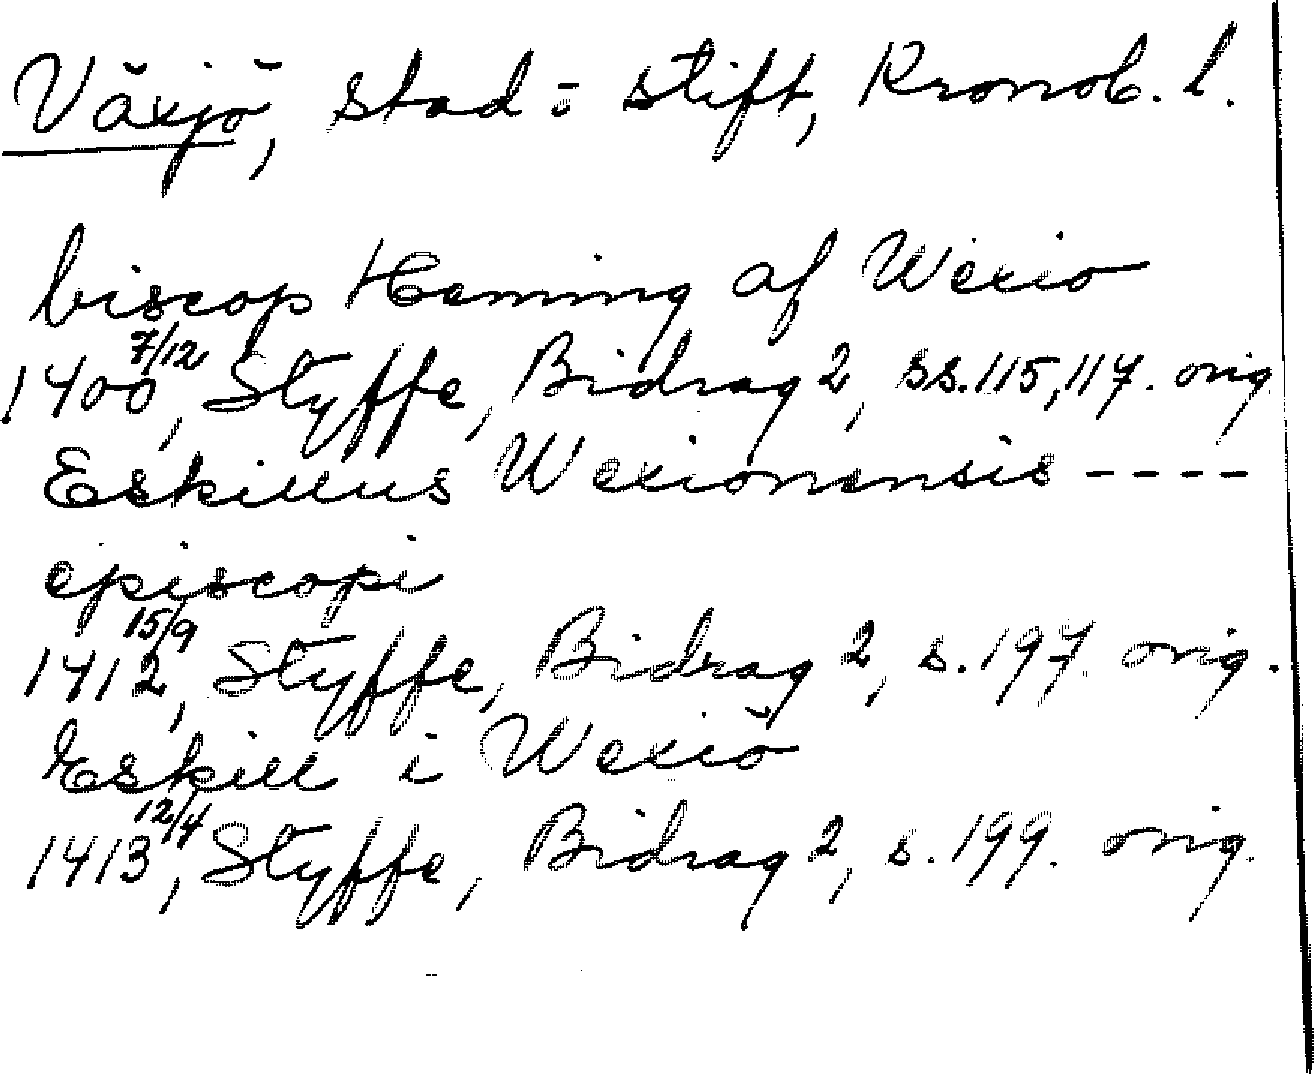 Växjö, stad = stift, Kronob. l.
biscop Heming af Wexio
1400 7/12, Styffe, Bidrag 2, ss. 115, 117. orig
Eskillus Wexionensis ----
episcopi
1412 15/9, Styffe, Bidrag 2, s. 197 orig.
Eskill i Wexiö
1413 12/4, Styffe, Bidrag 2, s. 199. orig.